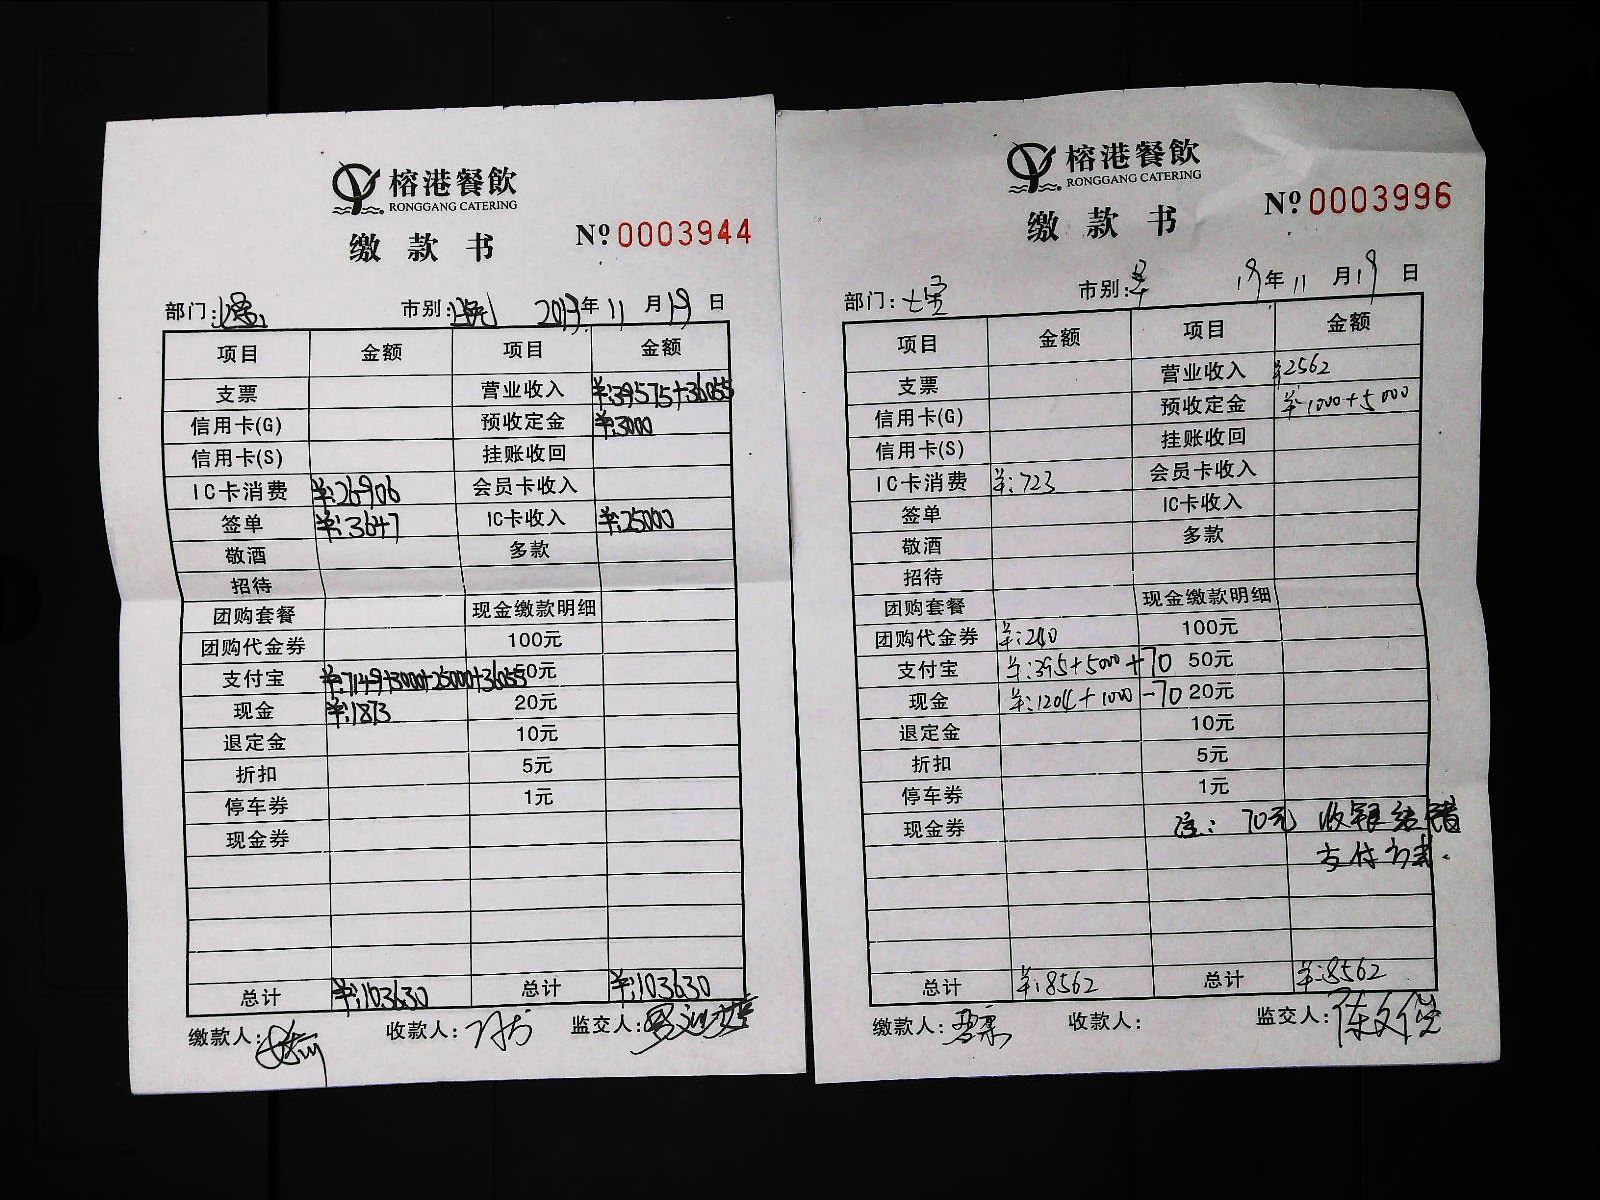 榕港餐飲
RONGGANG CATERING
缴款书
Nº 0003944
部门: 市别: 2019年11月19日
项目 金额 项目 金额
支票 营业收入 ¥:39575+36055
信用卡(G) 预收定金 ¥:3000
信用卡(S) 挂账收回
IC卡消费 ¥:26906 会员卡收入
签单 ¥:3647 IC卡收入 ¥:25000
敬酒 多款
招待
团购套餐 现金缴款明细
团购代金券 100元
支付宝 ¥:7149+3000+25000+36055 50元
现金 ¥:1873 20元
退定金 10元
折扣 5元
停车券 1元
现金券
总计 ¥:103630 总计 ¥:103630
缴款人: 收款人: 监交人:
榕港餐飲
RONGGANG CATERING
缴款书
Nº 0003996
部门:七宝 市别:早 19年11月19日
项目 金额 项目 金额
支票 营业收入 ¥2562
信用卡(G) 预收定金 ¥:1000+5000
信用卡(S) 挂账收回
IC卡消费 ¥:723 会员卡收入
签单 IC卡收入
敬酒 多款
招待
团购套餐 现金缴款明细
团购代金券 ¥:240 100元
支付宝 ¥:395+5000+70 50元
现金 ¥:1204+1000-70 20元
退定金 10元
折扣 5元
停车券 1元
现金券 注: 70元 收银结错
支付方式.
总计 ¥:8562 总计 ¥:8562
缴款人: 收款人: 监交人:陈文俊